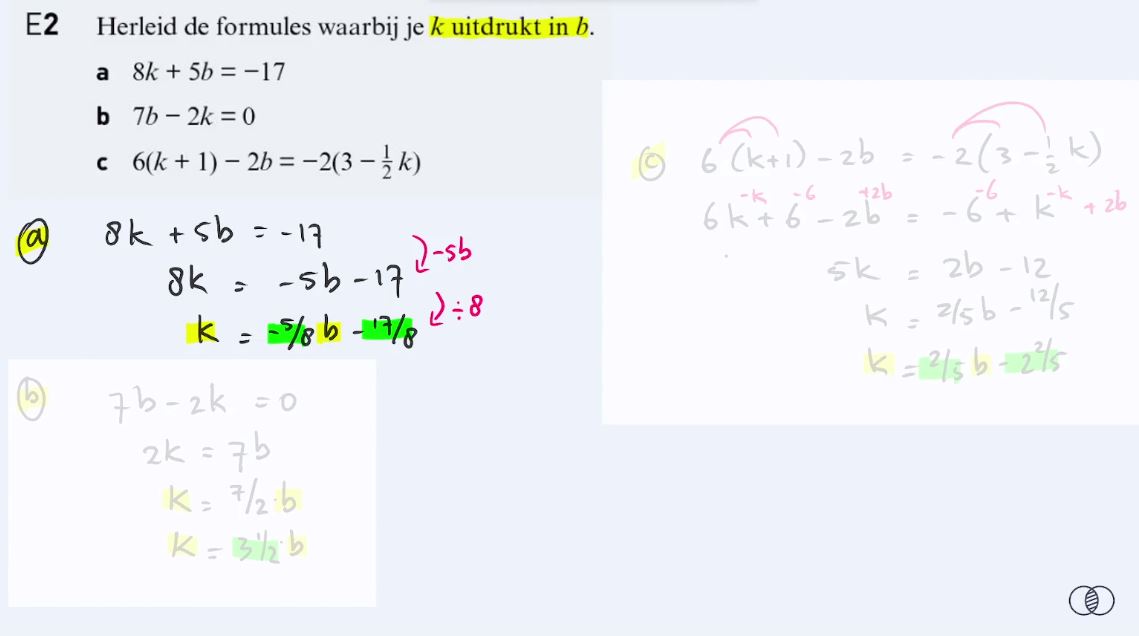 E2 Herleid de formules waarbij je k uitdrukt in b.
a 8k + 5b = −17
b 7b − 2k = 0
c 6(k + 1) − 2b = −2(3 − ½k)
a 8k + 5b = -17
-5b
8k = -5b - 17
÷8
k = -5/8 b - 17/8
b 7b - 2k = 0
2k = 7b
k = 7/2 · b
k = 3½ · b
c 6(k+1) - 2b = -2(3 - ½k)
-k -6 +2b -6 -k
6k + 6 - 2b = -6 + k + 2b
5k = 2b - 12
k = 2/5 b - 12/5
k = 2/5 b - 2 2/5